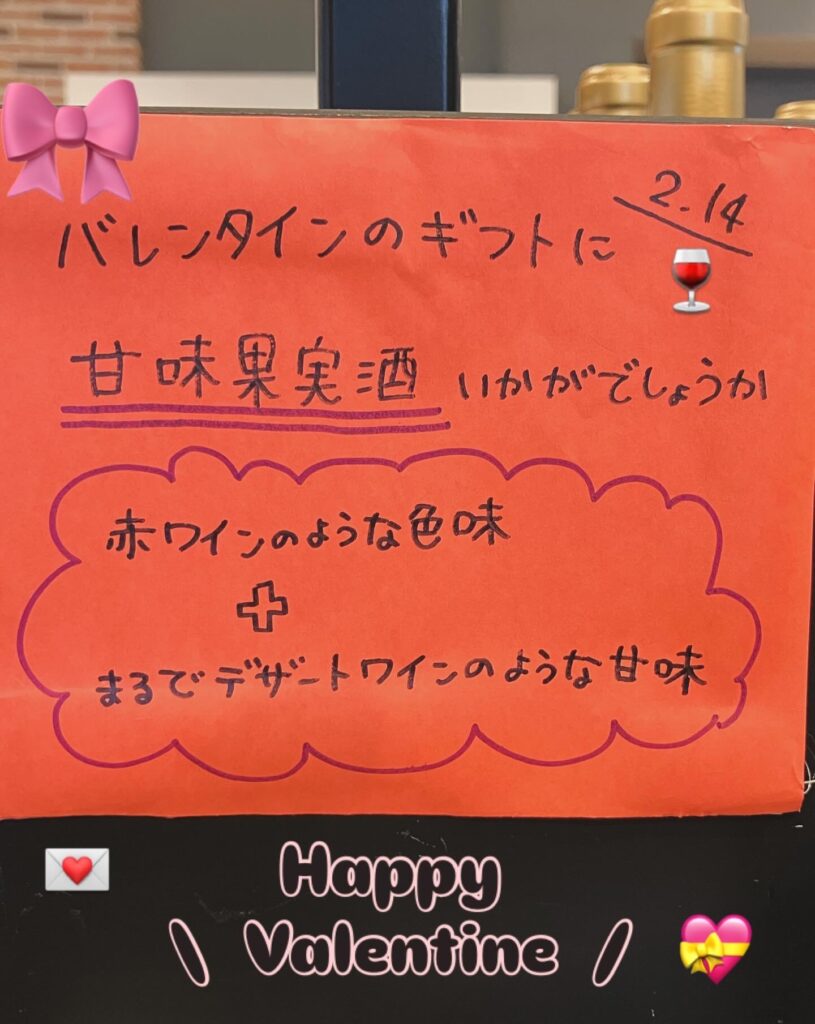 2.14
バレンタインのギフトに
甘味果実酒 いかがでしょうか
赤ワインのような色味
+
まるでデザートワインのような甘味
Happy
\ Valentine /